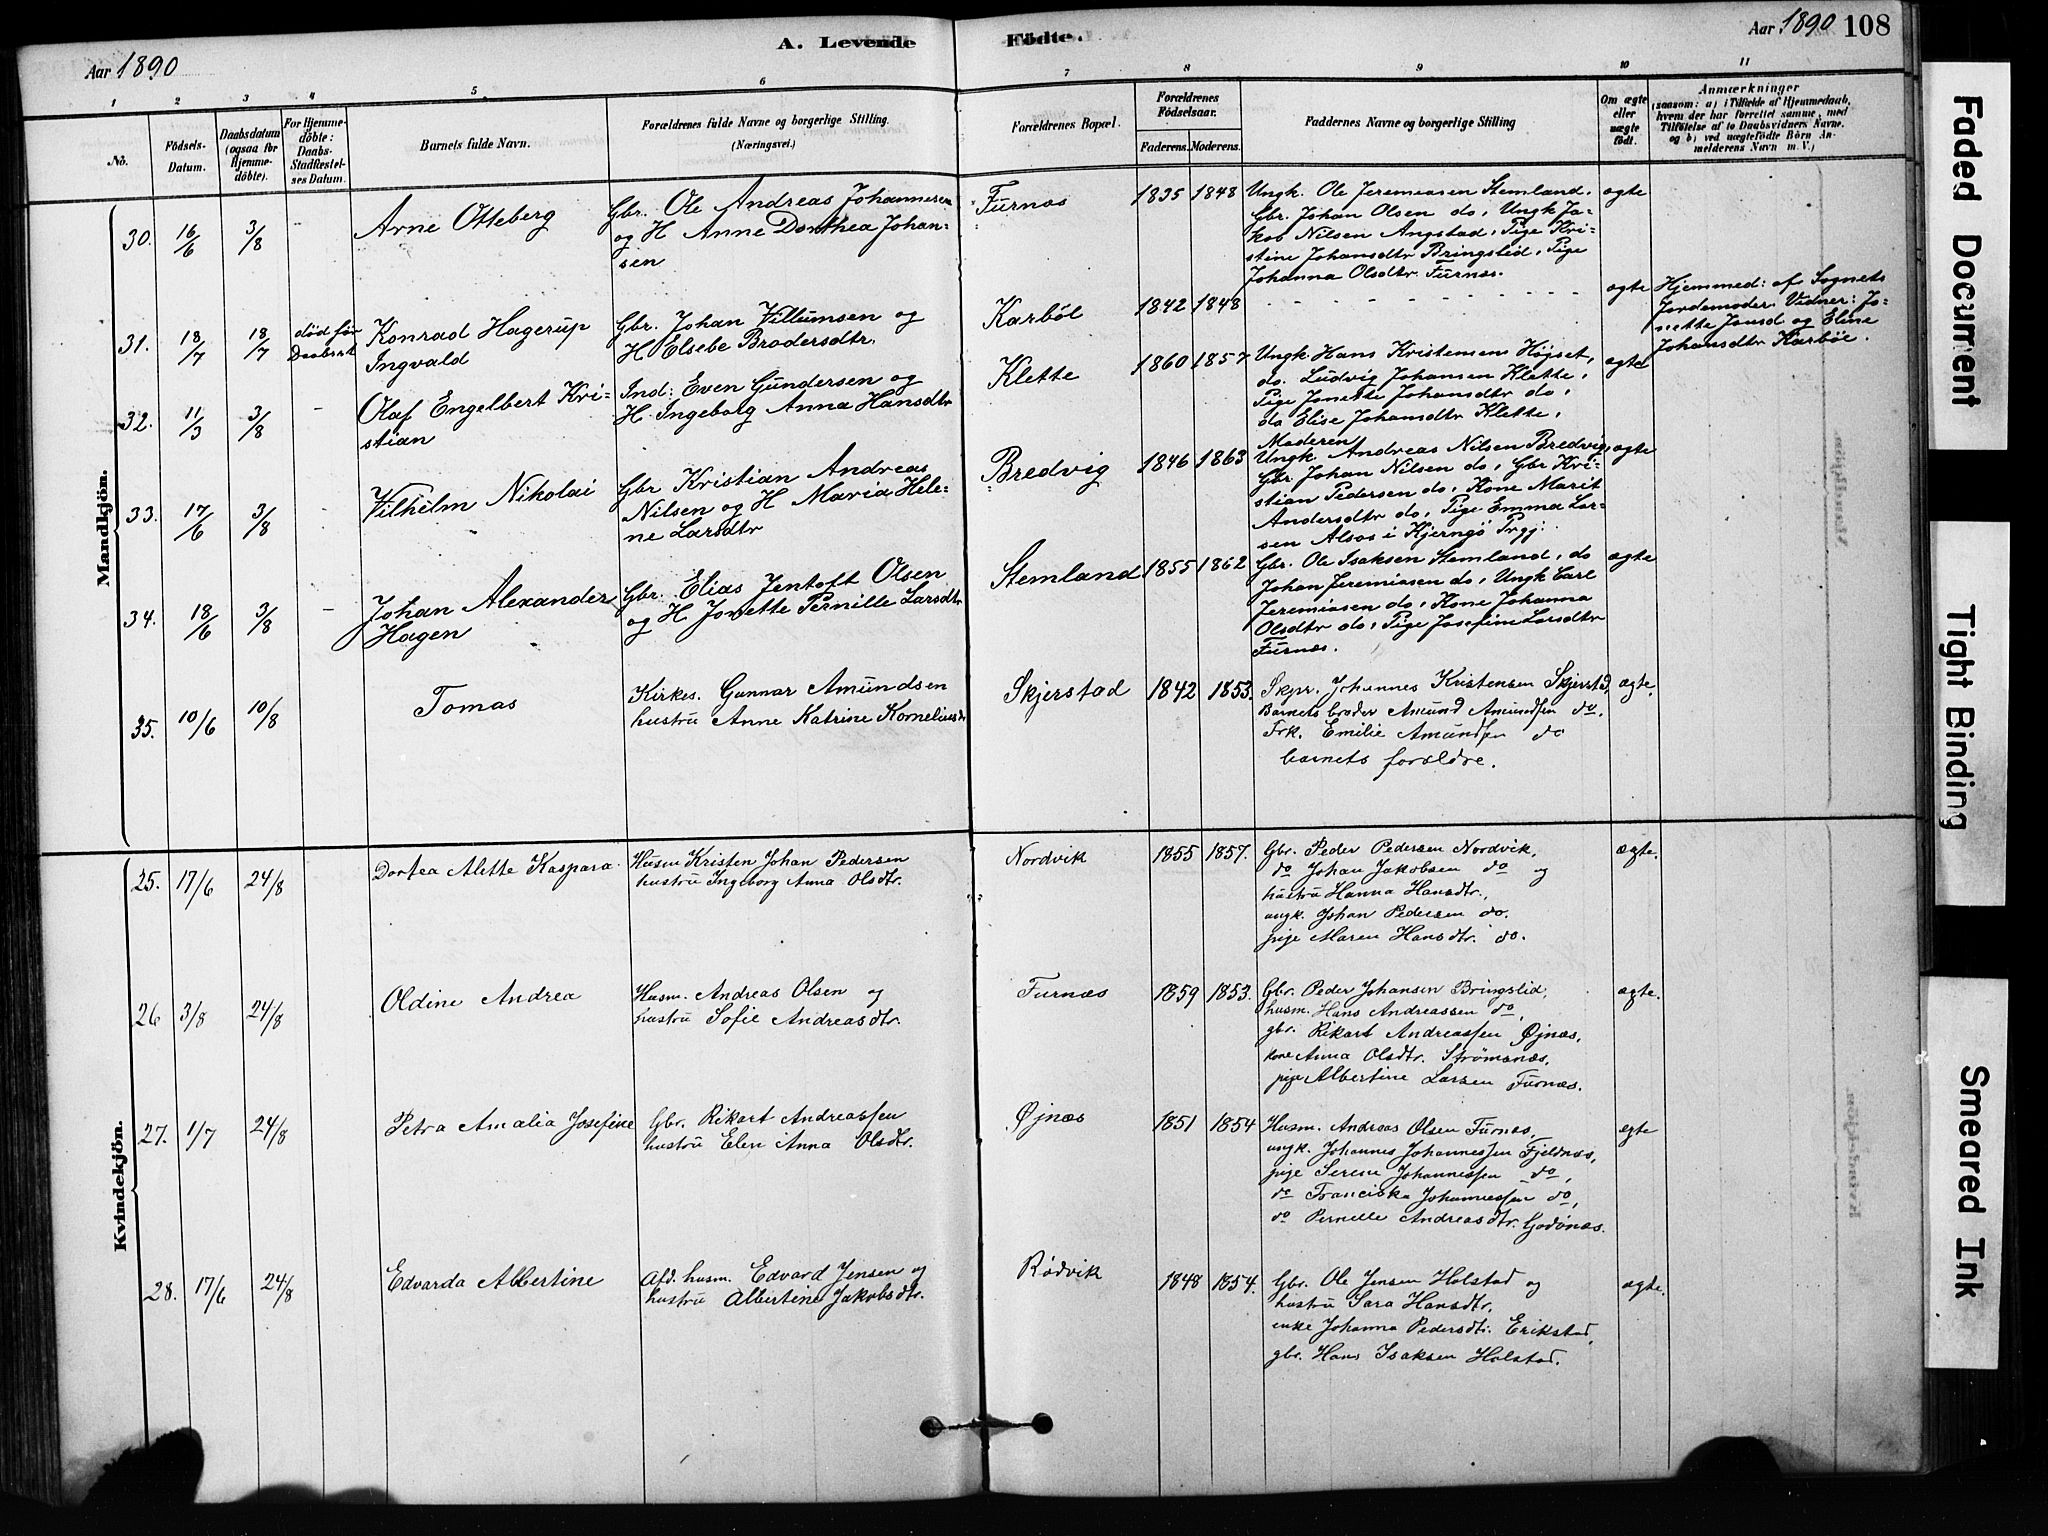 A. Levende Födte.
Aar 1890
Aar 1890 108
1 2 3 4 5 6 7 8 9 10 11
No.
Födsels-
Datum.
Daabsdatum
(ogsaa for
Hjemme-
döbte).
For Hjemme-
döbte:
Daabs-
Stadfæstel-
ses Datum.
Barnets fulde Navn.
Forældrenes fulde Navne og borgerlige Stilling.
(Næringsvei.)
Forældrenes Bopæl.
Forældrenes
Födselsaar.
Faderens. Moderens.
Faddernes Navne og borgerlige Stilling
Om ægte
eller
uægte
født.
Anmærkninger
(saasom: a) i Tilfælde af Hjemmedaab,
hvem der har forrettet samme, med
Tilföielse af to Daabsvidners Navne.
og b) ved uægtefödte Börn An-
melderens Navn m. V.)
Mandkjön.
30. 16/6 3/8 -
Arne Otteberg
Gbr. Ole Andreas Johannesen
og H Anne Dorthea Johan-
sen
Furnæs 1835 1848
Ungk. Ole Jeremiasen Stemland.
Gbr. Johan Olsen do, Ungk Ja-
kob Nilsen Angstad, Pige Kri-
stine Johansdtr Bringslid, Pige
Johanna Olsdtr. Furnæs.
ægte
31. 18/7 18/7
død før
Daabsst
Konrad Hagerup
Ingvald
Gbr. Johan Villumsen og
H Elsebe Brodersdtr.
Karbøl 1842 1848
- - - - - - - -
ægte
Hjemmed: af Sognets
Jordemoder. Vidner: Jo-
nette Jonsd og Eline
Johansdtr Karbøl.
32. 11/3 3/8 -
Olaf Engelbert Kri-
stian
Ind: Even Gundersen og
H. Ingeborg Anna Hansdtr
Klette 1860 1857
Ungk Hans Kristensen Højset,
do. Ludvig Johansen Klette,
Pige Jonette Johansdtr do,
do Elise Johansdtr Klette,
Moderen
ægte
33. 17/6 3/8
Vilhelm Nikolai
Gbr Kristian Andreas
Nilsen og H Maria Hele-
ne Larsdtr
Bredvig 1846 1863
Ungk. Andreas Nilsen Bredvig,
Gbr Johan Nilsen do, Gbr Kri-
stian Pedersen do, Kone Marit
Andersdtr do, Pige Emma Lar-
sen Alsos i Kjerngö Prgj.
ægte
34. 18/6 3/8 -
Johan Alexander
Hagen
Gbr. Elias Jentoft Olsen
og H Jonette Pernille Larsdtr
Stemland 1855 1862
Gbr. Ole Isaksen Stemland, do
Johan Jeremiasen do, Ungk Carl
Jeremiasen do, Kone Johanna
Olsdtr do, Pige Josefine Larsdtr
Furnæs.
ægte
35. 10/6 10/8
Tomas
Kirkes. Gunnar Amundsen
hustru Anne Katrine Korneliusdr
Skjerstad 1842 1853.
Skpr. Johannes Kristensen Skjerstd,
Barnets broder Amund Amundsen do.
Frk. Emilie Amundsen do
barnets forældre.
ægte.
Kvindekjön.
25. 17/6 24/8
Dortea Alette Kaspara.
Husm Kristen Johan Pedersen
hustru Ingeborg Anna Olsdtr.
Nordvik 1855 1857.
Gbr. Peder Pedersen Nordvik,
do Johan Jakobsen do og
hustru Hanna Hansdtr.,
ungk. Johan Pedersen do.
pige Maren Hansdtr. do.
ægte.
26 3/8 24/8
Oldine Andrea
Husm. Andreas Olsen og
hustru Sofie Andreasdtr.
Furnæs 1859 1853.
Gbr. Peder Johansen Bringslid,
husm. Hans Andreassen do,
gbr. Rikart Andreassen Øjnæs,
kone Anna Olsdtr. Strömsnæs,
pige Albertine Larsen Furnæs.
ægte.
27. 1/7 24/8
Petra Amalia Josefine
Gbr. Rikart Andreassen
hustru Elen Anna Olsdtr.
Øjnæs 1851 1854
Husm. Andreas Olsen Furnæs,
ungk. Johannes Johannessen Fjeldnæs,
pige Serene Johannessen do,
do Franciska Johannessen do,
do Pernelle Andreasdtr. Godönæs.
ægte
28. 17/6 24/8
Edvarda Albertine
Afd. husm. Edvard Jensen og
hustru Albertine Jakobsdtr.
Rødvik 1848 1854.
Gbr. Ole Jensen Holstad og
hustru Sara Hansdtr.
enke Johanna Pedersdtr. Erikstad,
gbr. Hans Isaksen Holstad.
ægte.
Faded Document
Tight Binding
Smeared Ink